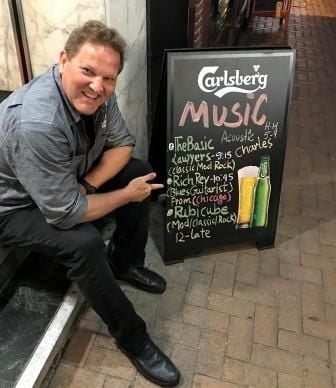 Carlsberg
MUSIC
The Basic
Lawyers-9:15
(classic Mod Rock)
Acoustic
Charles
H.H
5-9
Rich Rey-10:45
(Blues Guitarist)
From (Chicago)
Rubicube
(Mod/classic/Rock)
12-Late